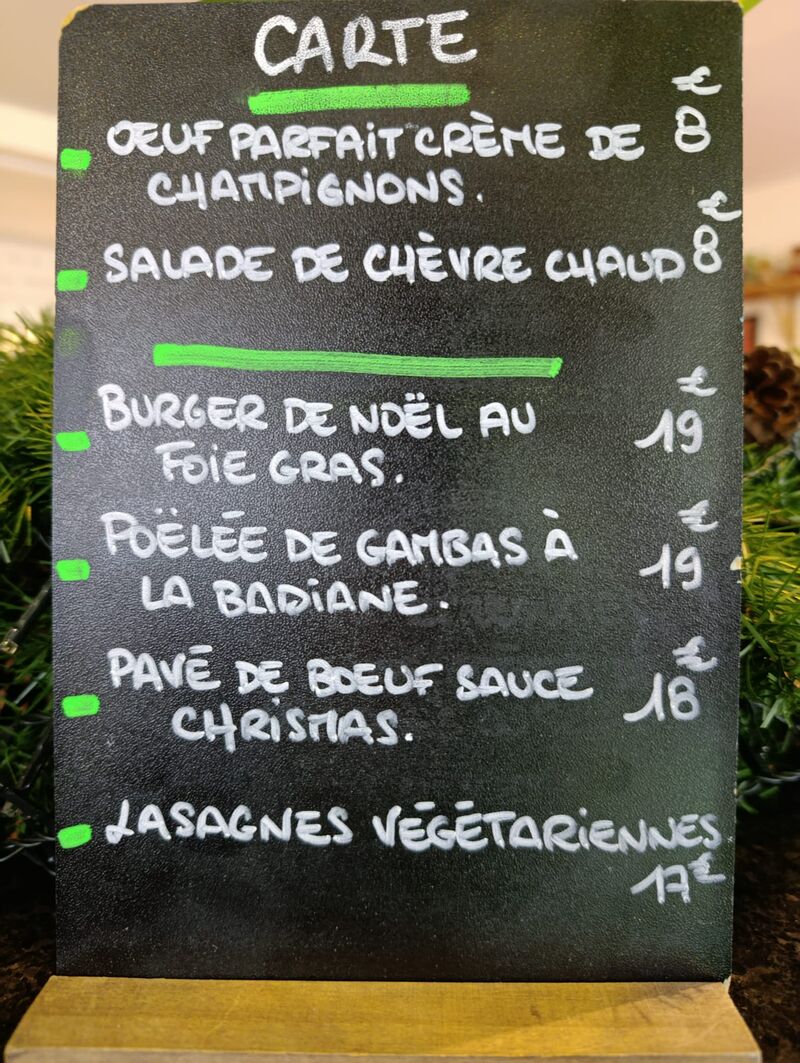 CARTE
OEUF PARFAIT CRÈME DE 8€
CHAMPIGNONS.
SALADE DE CHÈVRE CHAUD 8€
BURGER DE NOËL AU 19€
FOIE GRAS.
POËLÉE DE GAMBAS À 19€
LA BADIANE.
PAVÉ DE BOEUF SAUCE 18€
CHRISMAS.
LASAGNES VÉGÉTARIENNES
17€